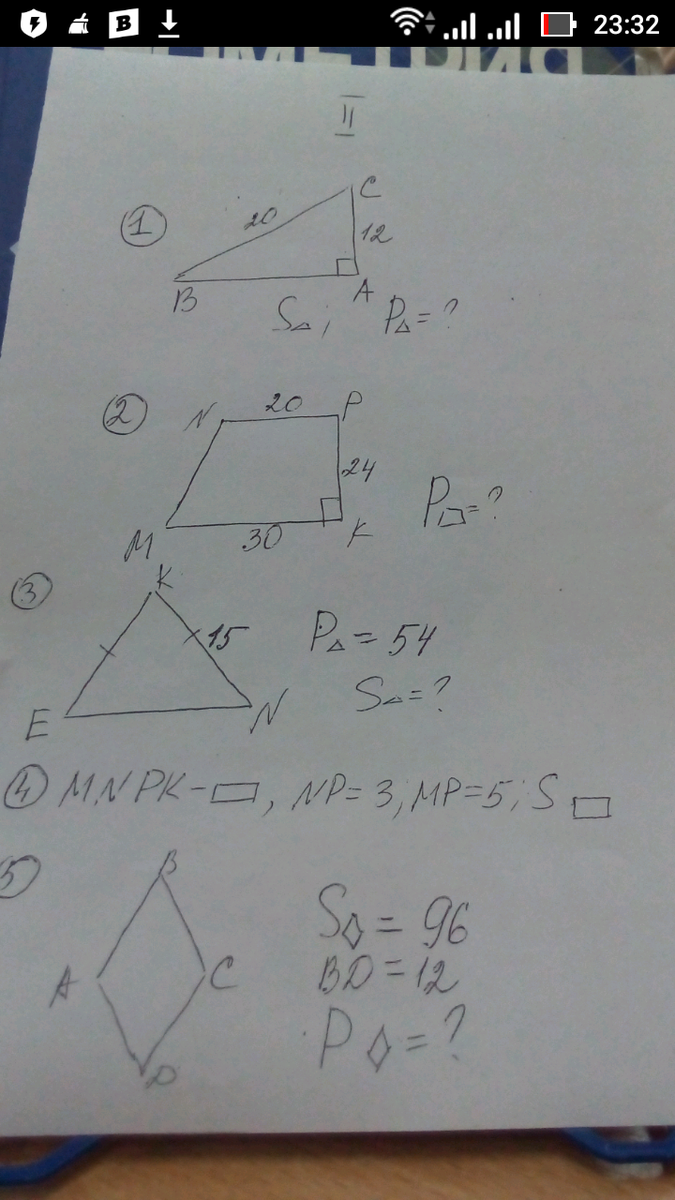 B 23:32
ГЕОМЕТРИЯ
II
1
20
C
12
B
A
S△; P△=?
2
N
20
P
24
M
30
K
P▱=?
3
K
15
E
N
P△=54
S△=?
4 MNPK-▭, NP=3; MP=5; S▭
5
B
A
C
D
S◊=96
BD=12
P◊=?